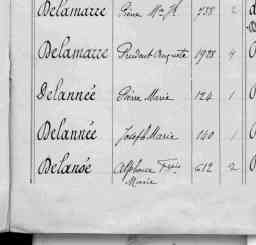 Delamarre Pierre Mie J 758 2
Delamarre Prudent Auguste 1928 4
Delannée Pierre Marie 124 1
Delannée Joseph Marie 140 1
Delanoë Alphonse Frçois 612 2
Marie